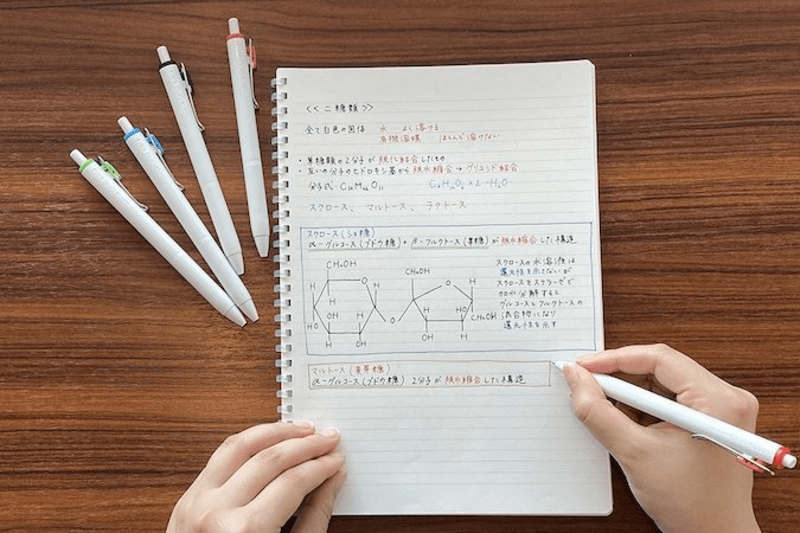 《二糖類》
全て白色の固体 水 よく溶ける
有機溶媒 ほとんど溶けない
・単糖類の2分子が脱水縮合したもの
・互いの分子のヒドロキシ基から脱水縮合→グリコシド結合
分子式:C₁₂H₂₂O₁₁ C₆H₁₂O₆×2-H₂O
スクロース、マルトース、ラクトース
スクロース(ショ糖)
α-グルコース(ブドウ糖)+β-フルクトース(果糖)が脱水縮合した構造
CH₂OH
H
O
H
H
OH
H
HO
H
OH
O
CH₂OH
O
H
H
HO
CH₂OH
OH
H
スクロースの水溶液は
還元性を示さないが
スクロースをスクラーゼで
加水分解すると
グルコースとフルクトースの
混合物になり
還元性を示す
マルトース(麦芽糖)
α-グルコース(ブドウ糖) 2分子が脱水縮合した構造